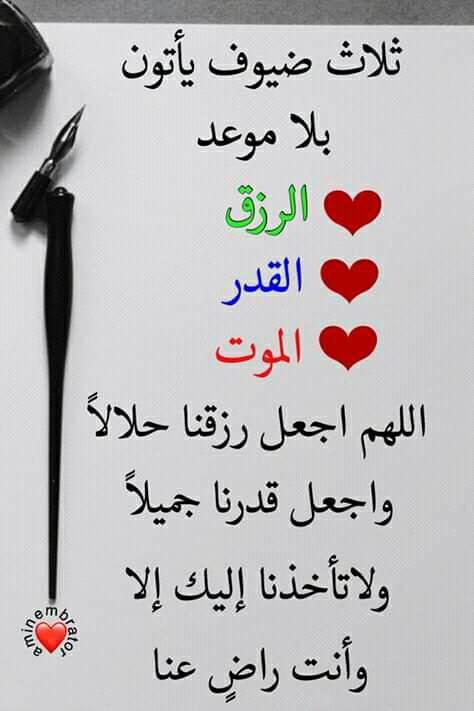 ثلاث ضيوف يأتون
بلا موعد
❤ الرزق
❤ القدر
❤ الموت
اللهم اجعل رزقنا حلالاً
واجعل قدرنا جميلاً
ولاتأخذنا إليك إلا
وأنت راضٍ عنا
aminembrator